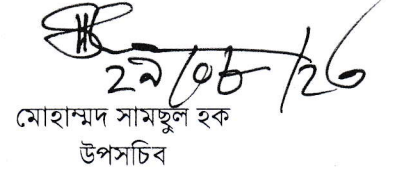 ২৯/০৮/২৩
মোহাম্মদ সামছুল হক
উপসচিব